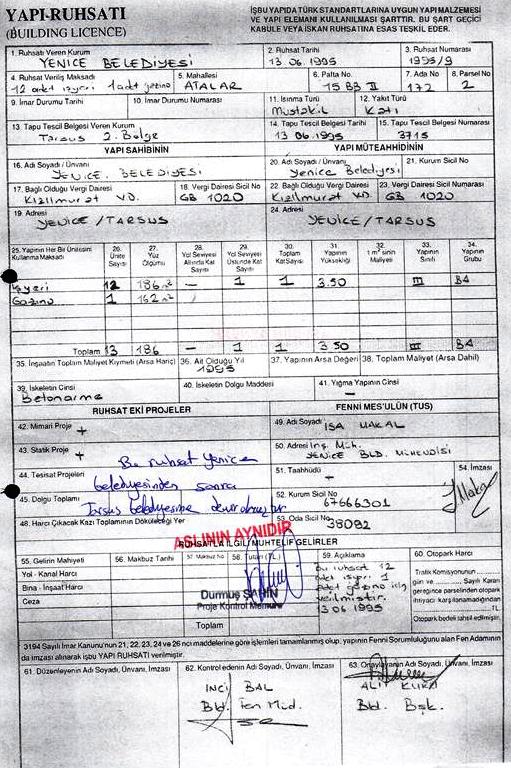 YAPI-RUHSATI
(BUILDING LICENCE)
İŞBU YAPIDA TÜRK STANDARTLARINA UYGUN YAPI MALZEMESİ
VE YAPI ELEMANI KULLANILMASI ŞARTTIR. BU ŞART GEÇİCİ
KABULE VEYA İSKAN RUHSATINA ESAS TEŞKİL EDER.
1. Ruhsatı Veren Kurum
YENİCE BELEDİYESİ
2. Ruhsat Tarihi
13.06.1995
3. Ruhsat Numarası
1995/9
4. Ruhsat Veriliş Maksadı
12 adet işyeri 1 adet gazino
5. Mahallesi
ATALAR
6. Pafta No.
15 B3 II
7. Ada No
172
8. Parsel No
2
9. İmar Durumu Tarihi
10. İmar Durumu Numarası
11. Isınma Türü
Müstakil
12. Yakıt Türü
Katı
13. Tapu Tescil Belgesi Veren Kurum
Tarsus 2. Bölge
14. Tapu Tescil Belgesi Tarihi
13 06.1995
15. Tapu Tescil Belgesi Numarası
3715
YAPI SAHİBİNİN
YAPI MÜTEAHHİDİNİN
16. Adı Soyadı / Ünvanı
YENİCE. BELEDİYESİ
20. Adı Soyadı / Ünvanı
Yenice Belediyesi
21. Kurum Sicil No
17. Bağlı Olduğu Vergi Dairesi
Kızılmurat V.D.
18. Vergi Dairesi Sicil No
GB 1020
22. Bağlı Olduğu Vergi Dairesi
Kızılmurat V.D.
23. Vergi Dairesi Sicil Numarası
GB 1020
19. Adresi
YENİCE / TARSUS
24. Adresi
YENİCE / TARSUS
25. Yapının Her Bir Ünitesini Kullanma Maksadı
26. Ünite Sayısı
27. Yüz Ölçümü
28. Yol Seviyesi Altında Kat Sayısı
29. Yol Seviyesi Üstünde Kat Sayısı
30. Toplam Kat Sayısı
31. Yapının Yüksekliği
32. 1 m² sinin Maliyeti
33. Yapının Sınıfı
34. Yapının Grubu
İşyeri 12 186 m² — 1 1 3.50 III B4
Gazino 1 162 m²
Toplam 13 186 — 1 1 3.50 III B4
35. İnşaatın Toplam Maliyet Kıymeti (Arsa Hariç)
36. Ait Olduğu Yıl
1995
37. Yapının Arsa Değeri
38. Toplam Maliyet (Arsa Dahil)
39. İskeletin Cinsi
Betonarme
40. İskeletin Dolgu Maddesi
41. Yığma Yapının Cinsi
—
RUHSAT EKİ PROJELER
FENNİ MES'ULÜN (TUS)
42. Mimari Proje +
49. Adı Soyadı
İSA MAKAL
43. Statik Proje +
50. Adresi İnş. Müh.
YENİCE BLD. MÜHENDİSİ
44. Tesisat Projeleri
51. Taahhüdü
—
54. İmzası
Bu ruhsat Yenice
belediyesinden sonra
Tarsus belediyesine devrolmuştur
45. Dolgu Toplamı
52. Kurum Sicil No
67666301
48. Harcı Çıkacak Kazı Toplamının Döküleceği Yer
53. Oda Sicil No
38092
ASLININ AYNIDIR
RUHSATLA İLGİLİ MUHTELİF GELİRLER
55. Gelirin Mahiyeti
56. Makbuz Tarihi
57. Makbuz No
58. Tutarı (TL.)
59. Açıklama
60. Otopark Harcı
Yol - Kanal Harcı
Bina - İnşaat Harcı
Ceza
Toplam
Bu ruhsat 12
adet işyeri 1
adet gazino için
verilmiştir.
13 06 1995
Trafik Komisyonunun
gün ve Sayılı Kararı
gereğince parselinden otopark
ihtiyacı karşılanamadığından
TL
Otopark bedeli tahsil edilmiştir.
Durmuş ŞAHİN
Proje Kontrol Memuru
3194 Sayılı İmar Kanunu'nun 21, 22, 23, 24 ve 26 ncı maddelerine göre işlemleri tamamlanmış olup, yapının Fenni Sorumluluğunu alan Fen Adamının
da imzası alınarak işbu YAPI RUHSATI verilmiştir.
61. Düzenleyenin Adı Soyadı, Ünvanı, İmzası
62. Kontrol edenin Adı Soyadı, Ünvanı, İmzası
63. Onaylayanın Adı Soyadı, Ünvanı, İmzası
İNCİ BAL
Bld. Fen Müd.
Bld. Bşk.